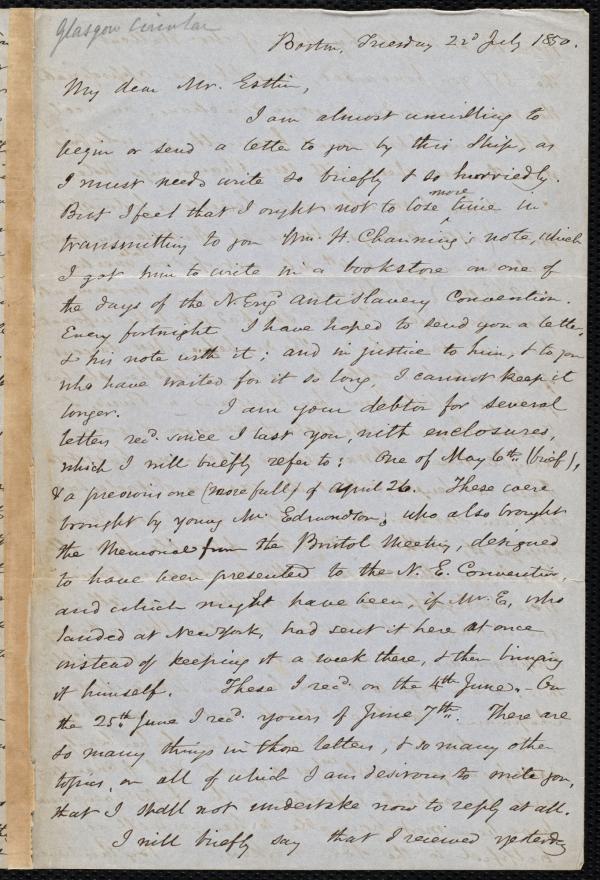 Glasgow Circular
Boston, Tuesday 22d July 1850.
My dear Mr. Estlin,
I am almost unwilling to
begin or send a letter to you by this Ship, as
I must needs write so briefly & so hurriedly.
But I feel that I ought not to lose more time in
transmitting to you Wm. H. Channing's note, which
I got him to write in a bookstore on one of
the days of the N. Engd. Antislavery Convention.
Every fortnight I have hoped to send you a letter,
& his note with it; and in justice to him, & to you
who have waited for it so long, I cannot keep it
longer. I am your debtor for several
letters recd. since I last you, with enclosures,
which I will briefly refer to: One of May 6th. (brief),
& a previous one (more full) of April 26. These were
brought by young Mr. Edmondton, who also brought
the Memorial from the Bristol Meeting, designed
to have been presented to the N. E. Convention,
and which might have been, if Mr. E, who
landed at New York, had sent it here at once
instead of keeping it a week there, & then bringing
it himself. These I recd. on the 4th June. - On
the 25th June I recd. yours of June 7th. There are
so many things in those letters, & so many other
topics, on all of which I am desirous to write you,
that I shall not undertake now to reply at all.
I will briefly say that I received yesterday